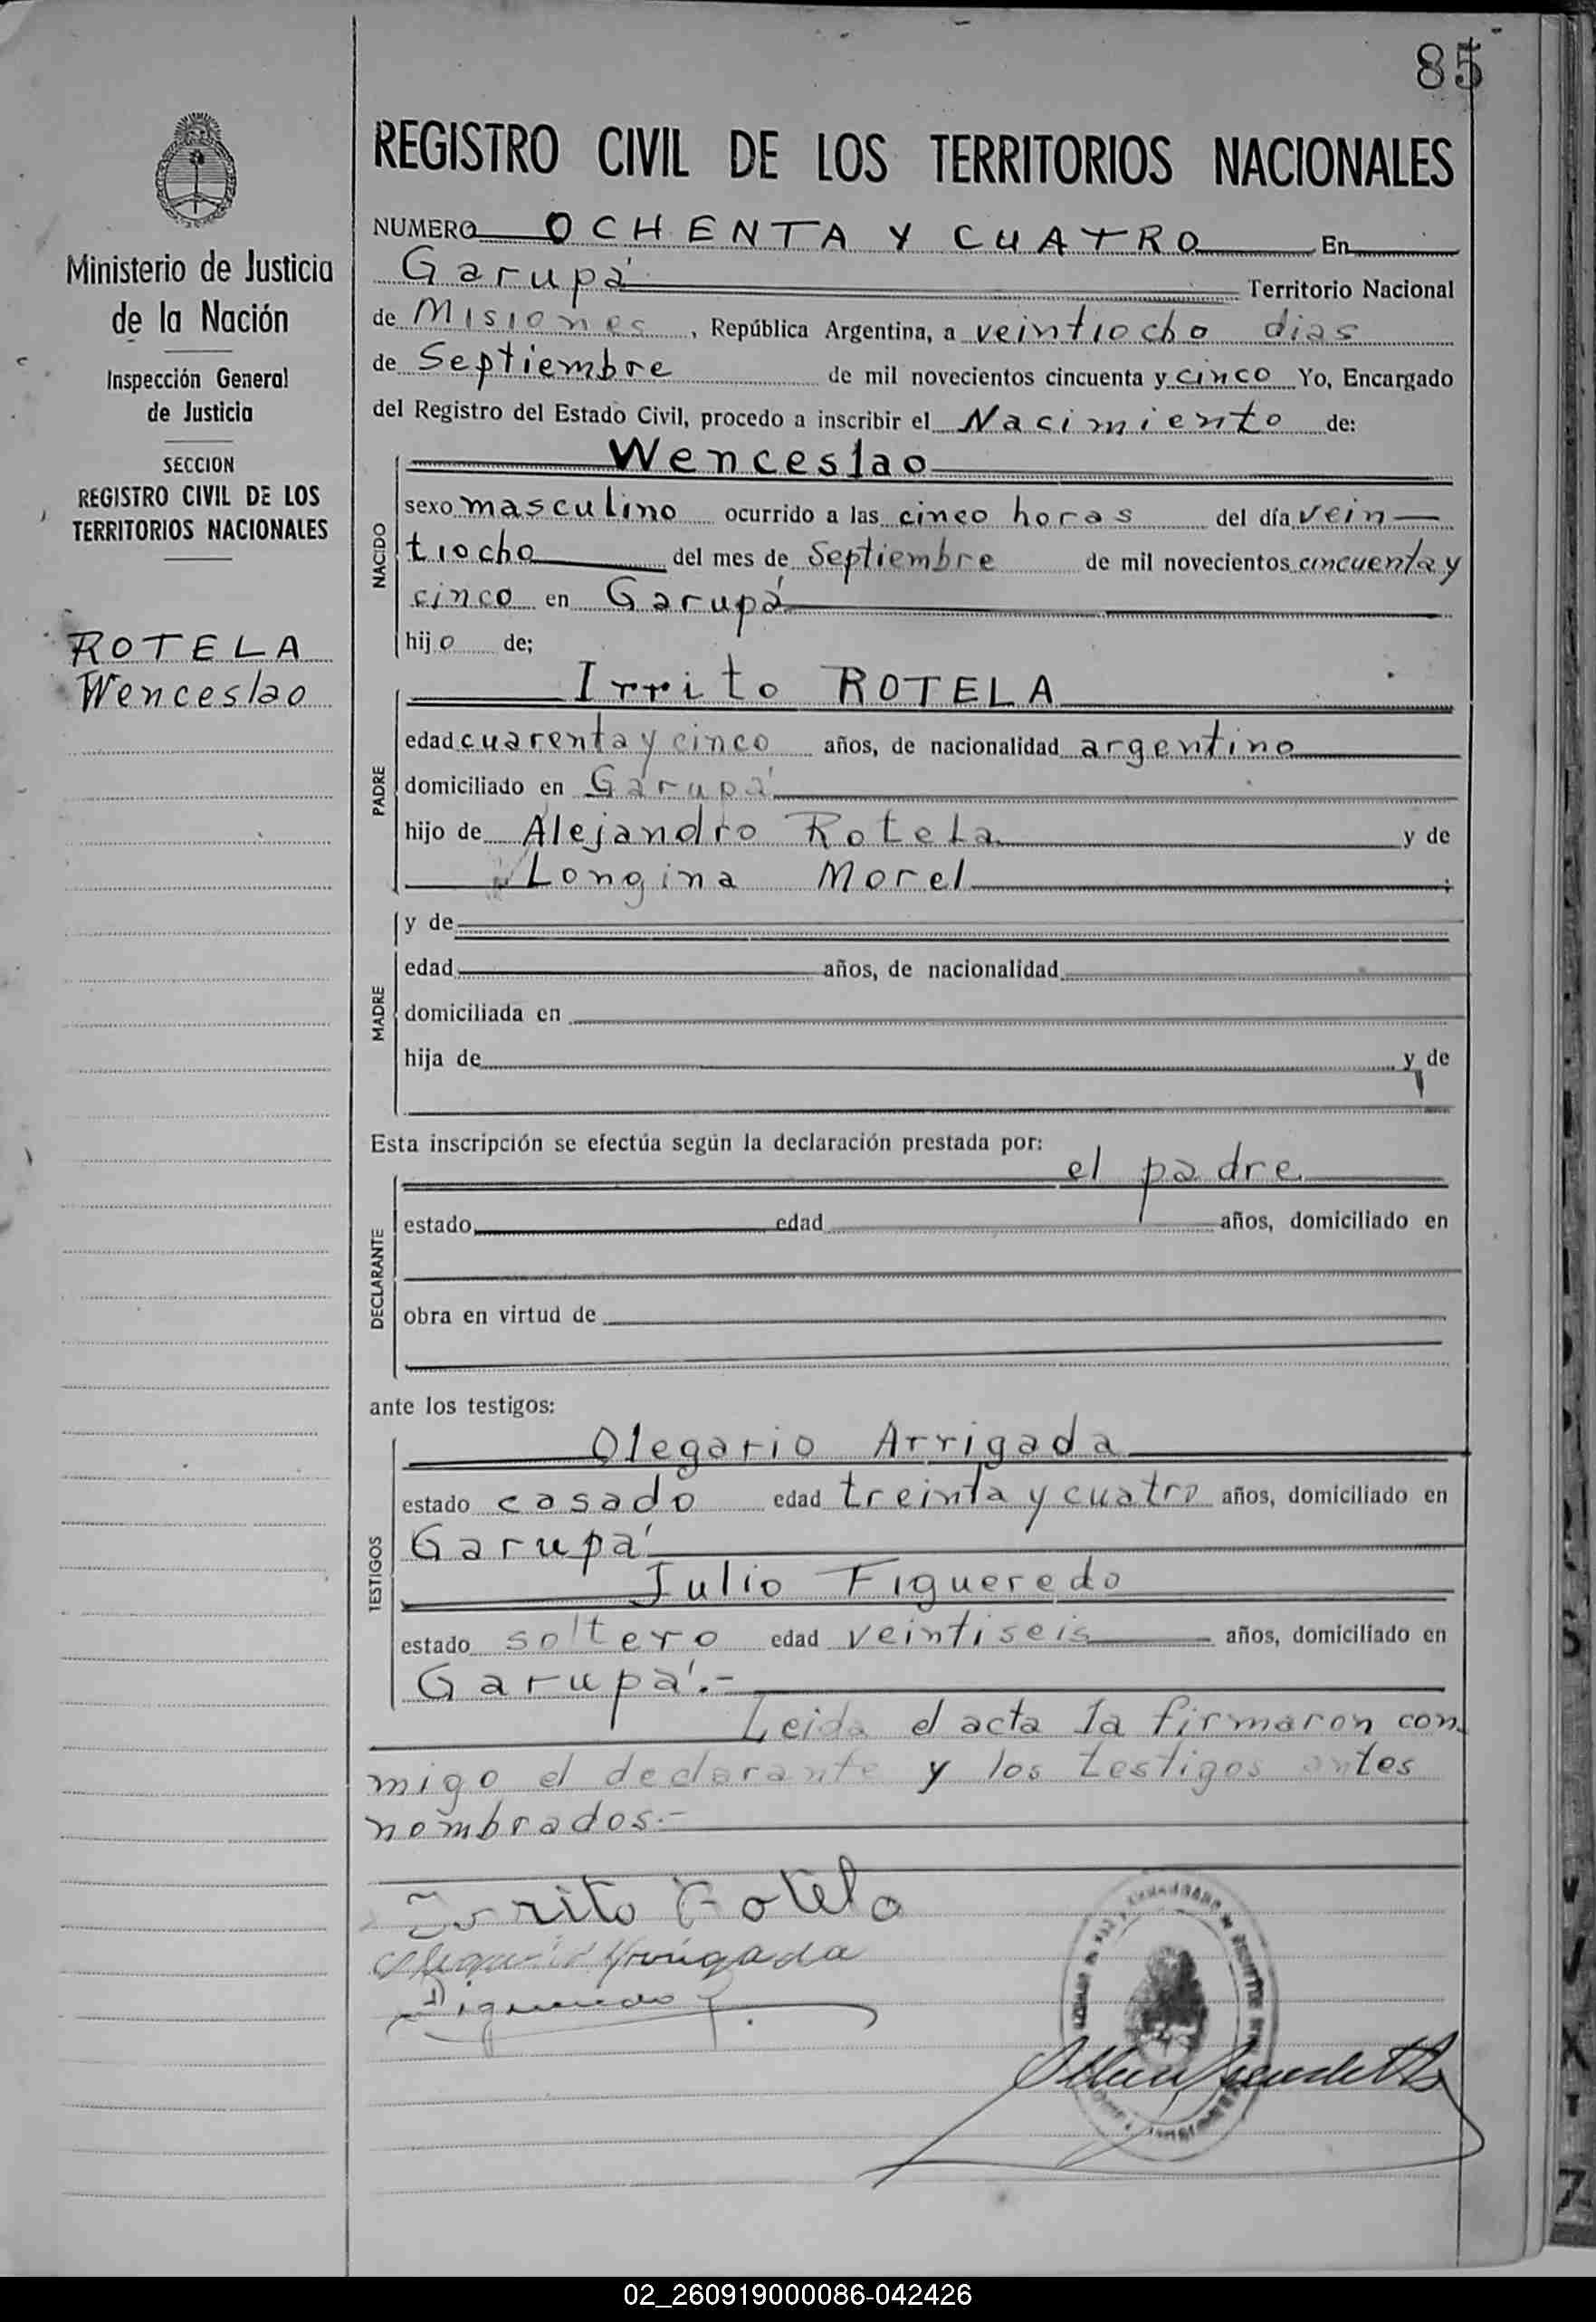 85
REGISTRO CIVIL DE LOS TERRITORIOS NACIONALES
Ministerio de Justicia
de la Nación
Inspección General
de Justicia
SECCION
REGISTRO CIVIL DE LOS
TERRITORIOS NACIONALES
ROTELA
Wenceslao
NUMERO OCHENTA Y CUATRO En
Garupá Territorio Nacional
de Misiones, República Argentina, a veintiocho dias
de Septiembre de mil novecientos cincuenta y cinco Yo, Encargado
del Registro del Estado Civil, procedo a inscribir el Nacimiento de:
NACIDO
Wenceslao
sexo masculino ocurrido a las cinco horas del día vein-
tiocho del mes de Septiembre de mil novecientos cincuenta y
cinco en Garupá
hijo de;
PADRE
Irrito ROTELA
edad cuarenta y cinco años, de nacionalidad argentino
domiciliado en Garupá
hijo de Alejandro Rotela y de
Longina Morel;
MADRE
y de
edad años, de nacionalidad
domiciliada en
hija de y de
Esta inscripción se efectúa según la declaración prestada por:
DECLARANTE
el padre
estado edad años, domiciliado en
obra en virtud de
ante los testigos:
TESTIGOS
Olegario Arrigada
estado casado edad treinta y cuatro años, domiciliado en
Garupá
Julio Figueredo
estado soltero edad veintiseis años, domiciliado en
Garupá.-
Leida el acta la firmaron con
migo el declarante y los testigos antes
nombrados.-
Irrito Rotela
Arrigada
Figueredo
02_260919000086-042426